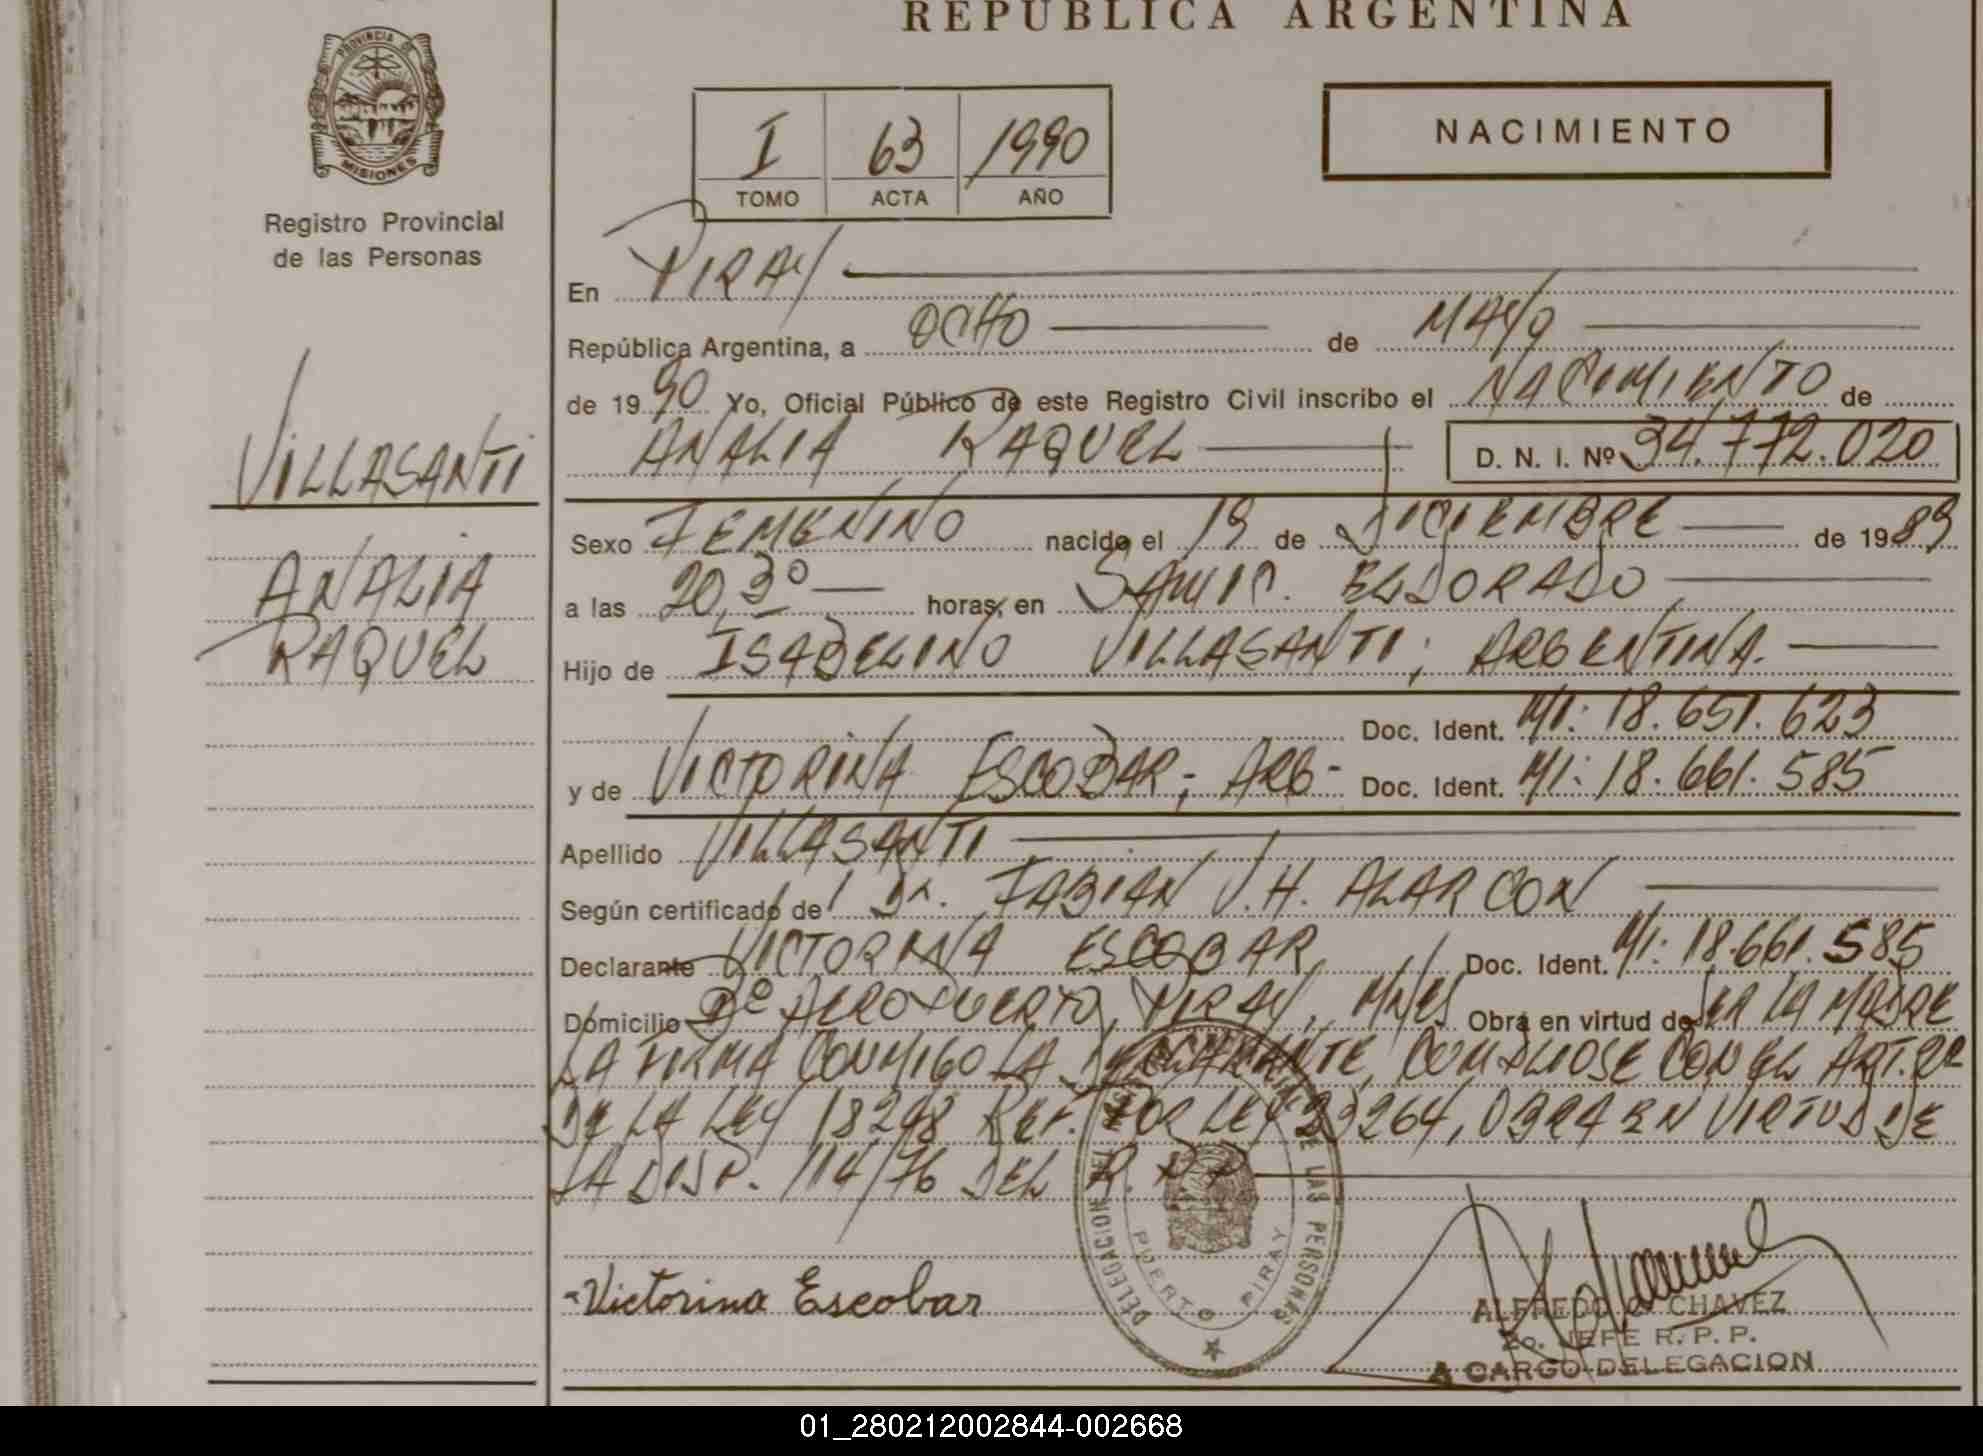 REPUBLICA ARGENTINA
PROVINCIA DE
MISIONES
Registro Provincial
de las Personas
I 63 1990
TOMO ACTA AÑO
NACIMIENTO
En PIRAY
República Argentina, a OCHO de MAYO
de 1990 Yo, Oficial Público de este Registro Civil inscribo el NACIMIENTO de
ANALIA RAQUEL D. N. I. Nº 34.772.020
VILLASANTI
ANALIA
RAQUEL
Sexo FEMENINO nacido el 19 de DICIEMBRE de 1989
a las 20,30 horas, en SAMIC. ELDORADO
Hijo de ISABELINO VILLASANTI; ARGENTINA.
Doc. Ident. M/I: 18.651.623
y de VICTORINA ESCOBAR; ARG- Doc. Ident. M/I: 18.661.585
Apellido VILLASANTI
Según certificado de Dr. FABIAN V.H. ALARCON
Declarante VICTORINA ESCOBAR Doc. Ident. M/I: 18.661.585
Domicilio Bº AEROPUERTO, PIRAY, MNES Obra en virtud de SER LA MADRE
LA FIRMA CONMIGO LA DECLARANTE, COMPLIOSE CON EL ART. 2º
DE LA LEY 18248 REF. POR LEY 23264, OBRA EN VIRTUD DE
LA DISP. 114/76 DEL R.P.P
DELEGACION DEL DE LAS PERSONAS
PUERTO PIRAY
-Victorina Escobar
ALFREDO CHAVEZ
2o. JEFE R. P. P.
A CARGO DELEGACION
01_280212002844-002668